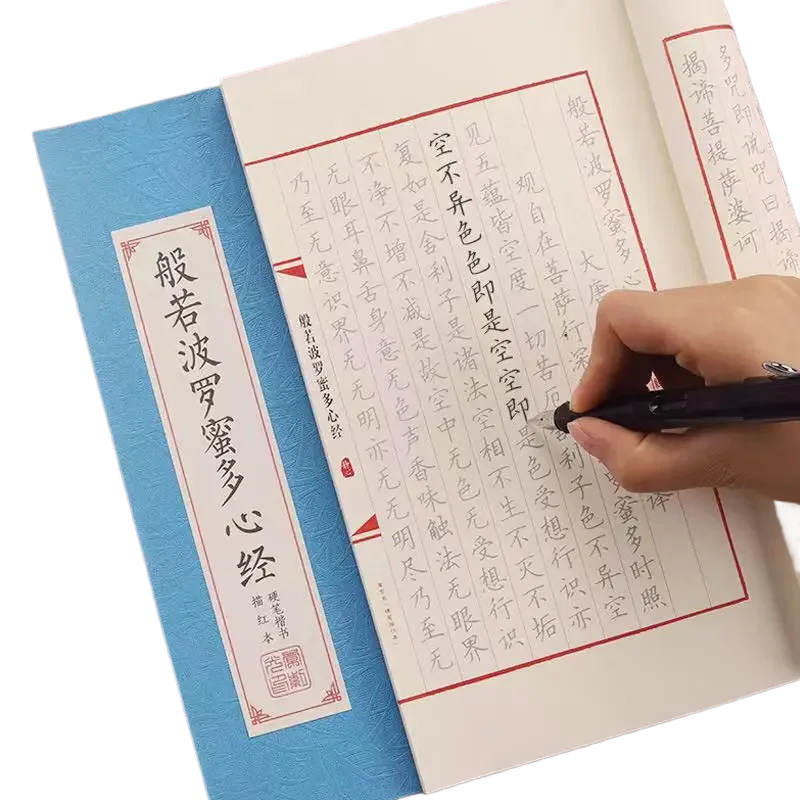 多咒即说咒曰揭谛
揭谛菩提萨婆诃
般若波罗蜜多心
大唐
译
观自在菩萨行深
罗蜜多时照
见五蕴皆空度一切苦厄
利子色不异空
空不异色色即是空空即是色受想行识亦
复如是舍利子是诸法空相不生不灭不垢
不净不增不减是故空中无色无受想行识
无眼耳鼻舌身意无色声香味触法无眼界
乃至无意识界无无明亦无无明尽乃至无
般若波罗蜜多心经
般若波罗蜜多心经
硬笔楷书
描红本